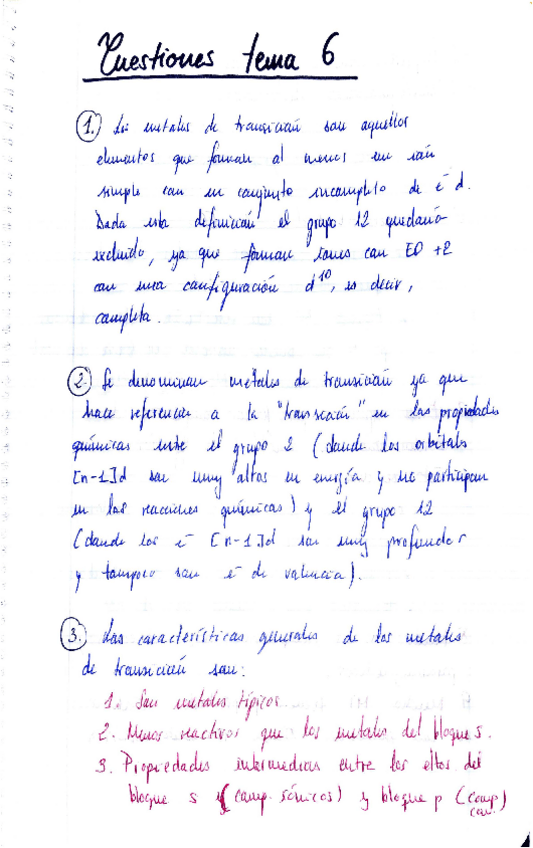 Cuestiones tema 6
1. Los metales de transición son aquellos
elementos que forman al menos un ión
simple con un conjunto incompleto de e⁻ d.
Dada esta definición el grupo 12 quedaría
excluido, ya que forman iones con EO +2
con una configuración d¹⁰, es decir,
completa.
2. Se denominan metales de transición ya que
hace referencia a la "transición" en las propiedades
químicas entre el grupo 2 (donde los orbitals
[n-1]d son muy altos en energía y no participan
en las reacciones químicas) y el grupo 12
(donde los e⁻ [n-1]d son muy profundos
y tampoco son e⁻ de valencia).
3. Las características generales de los metales
de transición son:
1. Son metales típicos
2. Menos reactivos que los metales del bloque s.
3. Propiedades intermedias entre los eltos del
bloque s (comp. iónicos) y bloque p (comp
cov.)